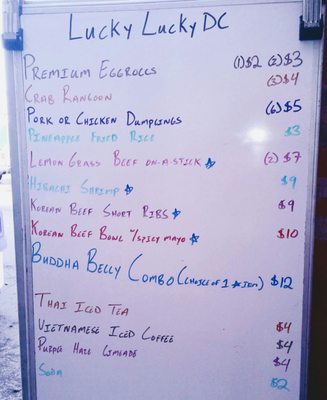 Lucky Lucky DC
Premium Eggrolls (1)$2 (2)$3
Crab Rangoon (3)$4
Pork or Chicken Dumplings (6)$5
Pineapple Fried Rice $3
Lemon Grass Beef on-a-stick ☆ (2) $7
Hibachi Shrimp ☆ $9
Korean Beef Short Ribs ☆ $9
Korean Beef Bowl w/spicy mayo ☆ $10
Buddha Belly Combo (choice of 1 ☆ item) $12
Thai Iced Tea $4
Vietnamese Iced Coffee $4
Purple Haze Limeade $4
Soda $2